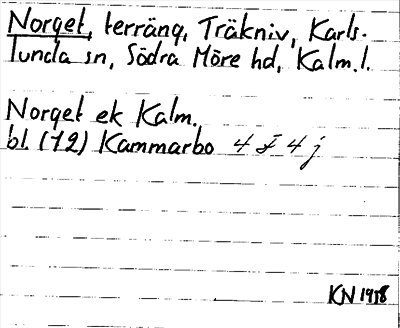 Norget, terräng, Träkniv, Karls-
lunda sn, Södra Möre hd, Kalm.l.
Norget ek Kalm.
bl. (12) Kammarbo 4 F 4 j
KN 1978